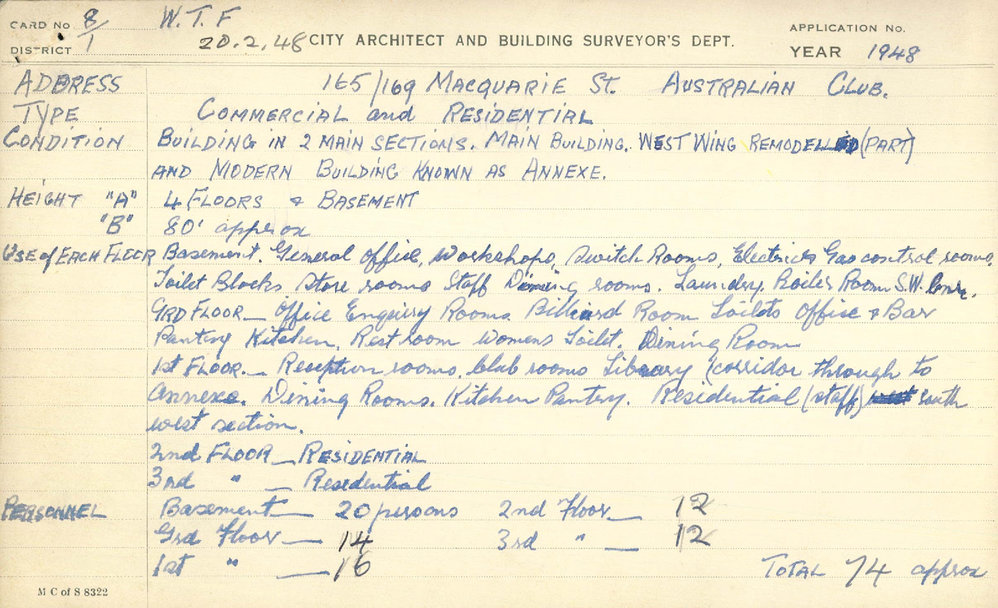 CARD No 8/1 W. T. F
DISTRICT 20.2.48 CITY ARCHITECT AND BUILDING SURVEYOR'S DEPT. APPLICATION No.
YEAR 1948
ADDRESS 165/169 MACQUARIE ST. AUSTRALIAN CLUB.
TYPE COMMERCIAL and RESIDENTIAL
CONDITION BUILDING IN 2 MAIN SECTIONS. MAIN BUILDING. WEST WING REMODELLED (PART)
AND MODERN BUILDING KNOWN AS ANNEXE.
HEIGHT "A" 4 FLOORS & BASEMENT
"B" 80' approx
USE of EACH FLOOR Basement. General Office, Workshops, Switch Rooms, Electric Gas control rooms,
Toilet Blocks Store rooms Staff Dining rooms. Laundry. Boiler Room S.W.
GRD FLOOR_ Office Enquiry Rooms Billiard Room Toilets Office & Bar
Pantry Kitchen, Rest room Womens Toilet. Dining Room
1st FLOOR._ Reception rooms, Club rooms Library (corridor through to
annexe. Dining Rooms. Kitchen Pantry. Residential (staff) south
west section.
2nd FLOOR_ RESIDENTIAL
3rd " _ Residential
PERSONNEL Basement_ 20 persons 2nd Floor_ 12
Grd Floor_ 14 3rd " _ 12
1st " _ 16 TOTAL 74 approx
M C of S 8322